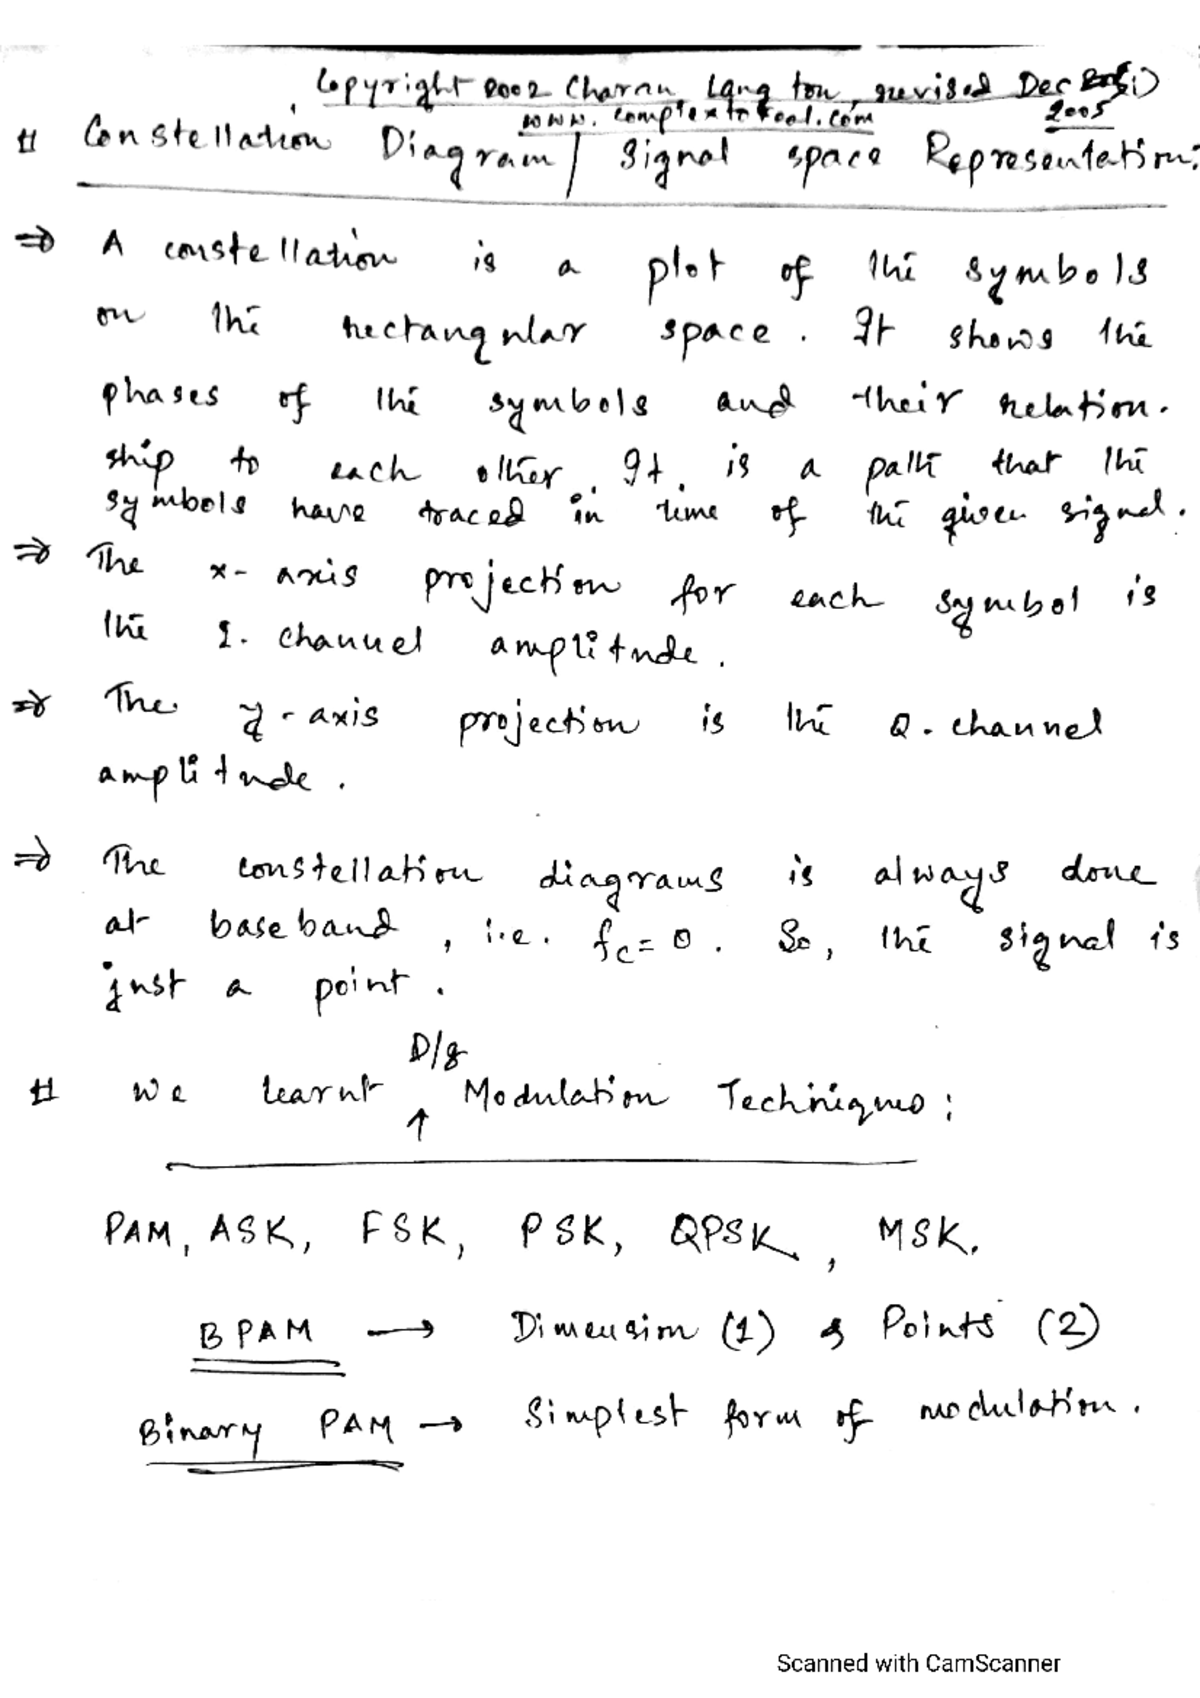 Copyright 2002 Charan Langton, revised Dec
www.complextoreal.com 2005
# Constellation Diagram / Signal space Representation:
⇒ A constellation is a plot of the symbols
on the rectangular space. It shows the
phases of the symbols and their relation-
ship to each other. It is a path that the
symbols have traced in time of the given signal.
⇒ The x-axis projection for each symbol is
the I-channel amplitude.
⇒ The y-axis projection is the Q-channel
amplitude.
⇒ The constellation diagrams is always done
at baseband, i.e. fc = 0. So, the signal is
just a point.
D/g
# We learnt ↑ Modulation Techniques:
PAM, ASK, FSK, PSK, QPSK, MSK.
BPAM → Dimension (1) & Points (2)
Binary PAM → Simplest form of modulation.
Scanned with CamScanner